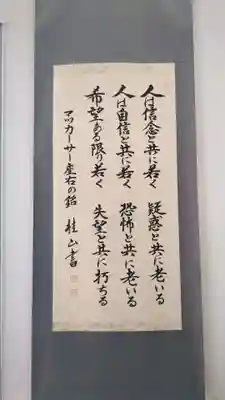 人は信念と共に若く　疑惑と共に老いる
人は自信と共に若く　恐怖と共に老いる
希望ある限り若く　失望と共に朽ちる
マッカーサー座右の銘　桂山書